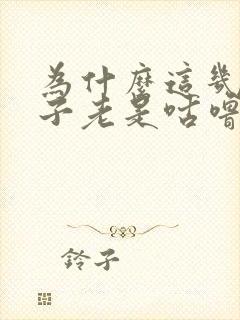 為什麼這幾
子老是咕嚕
鈴子